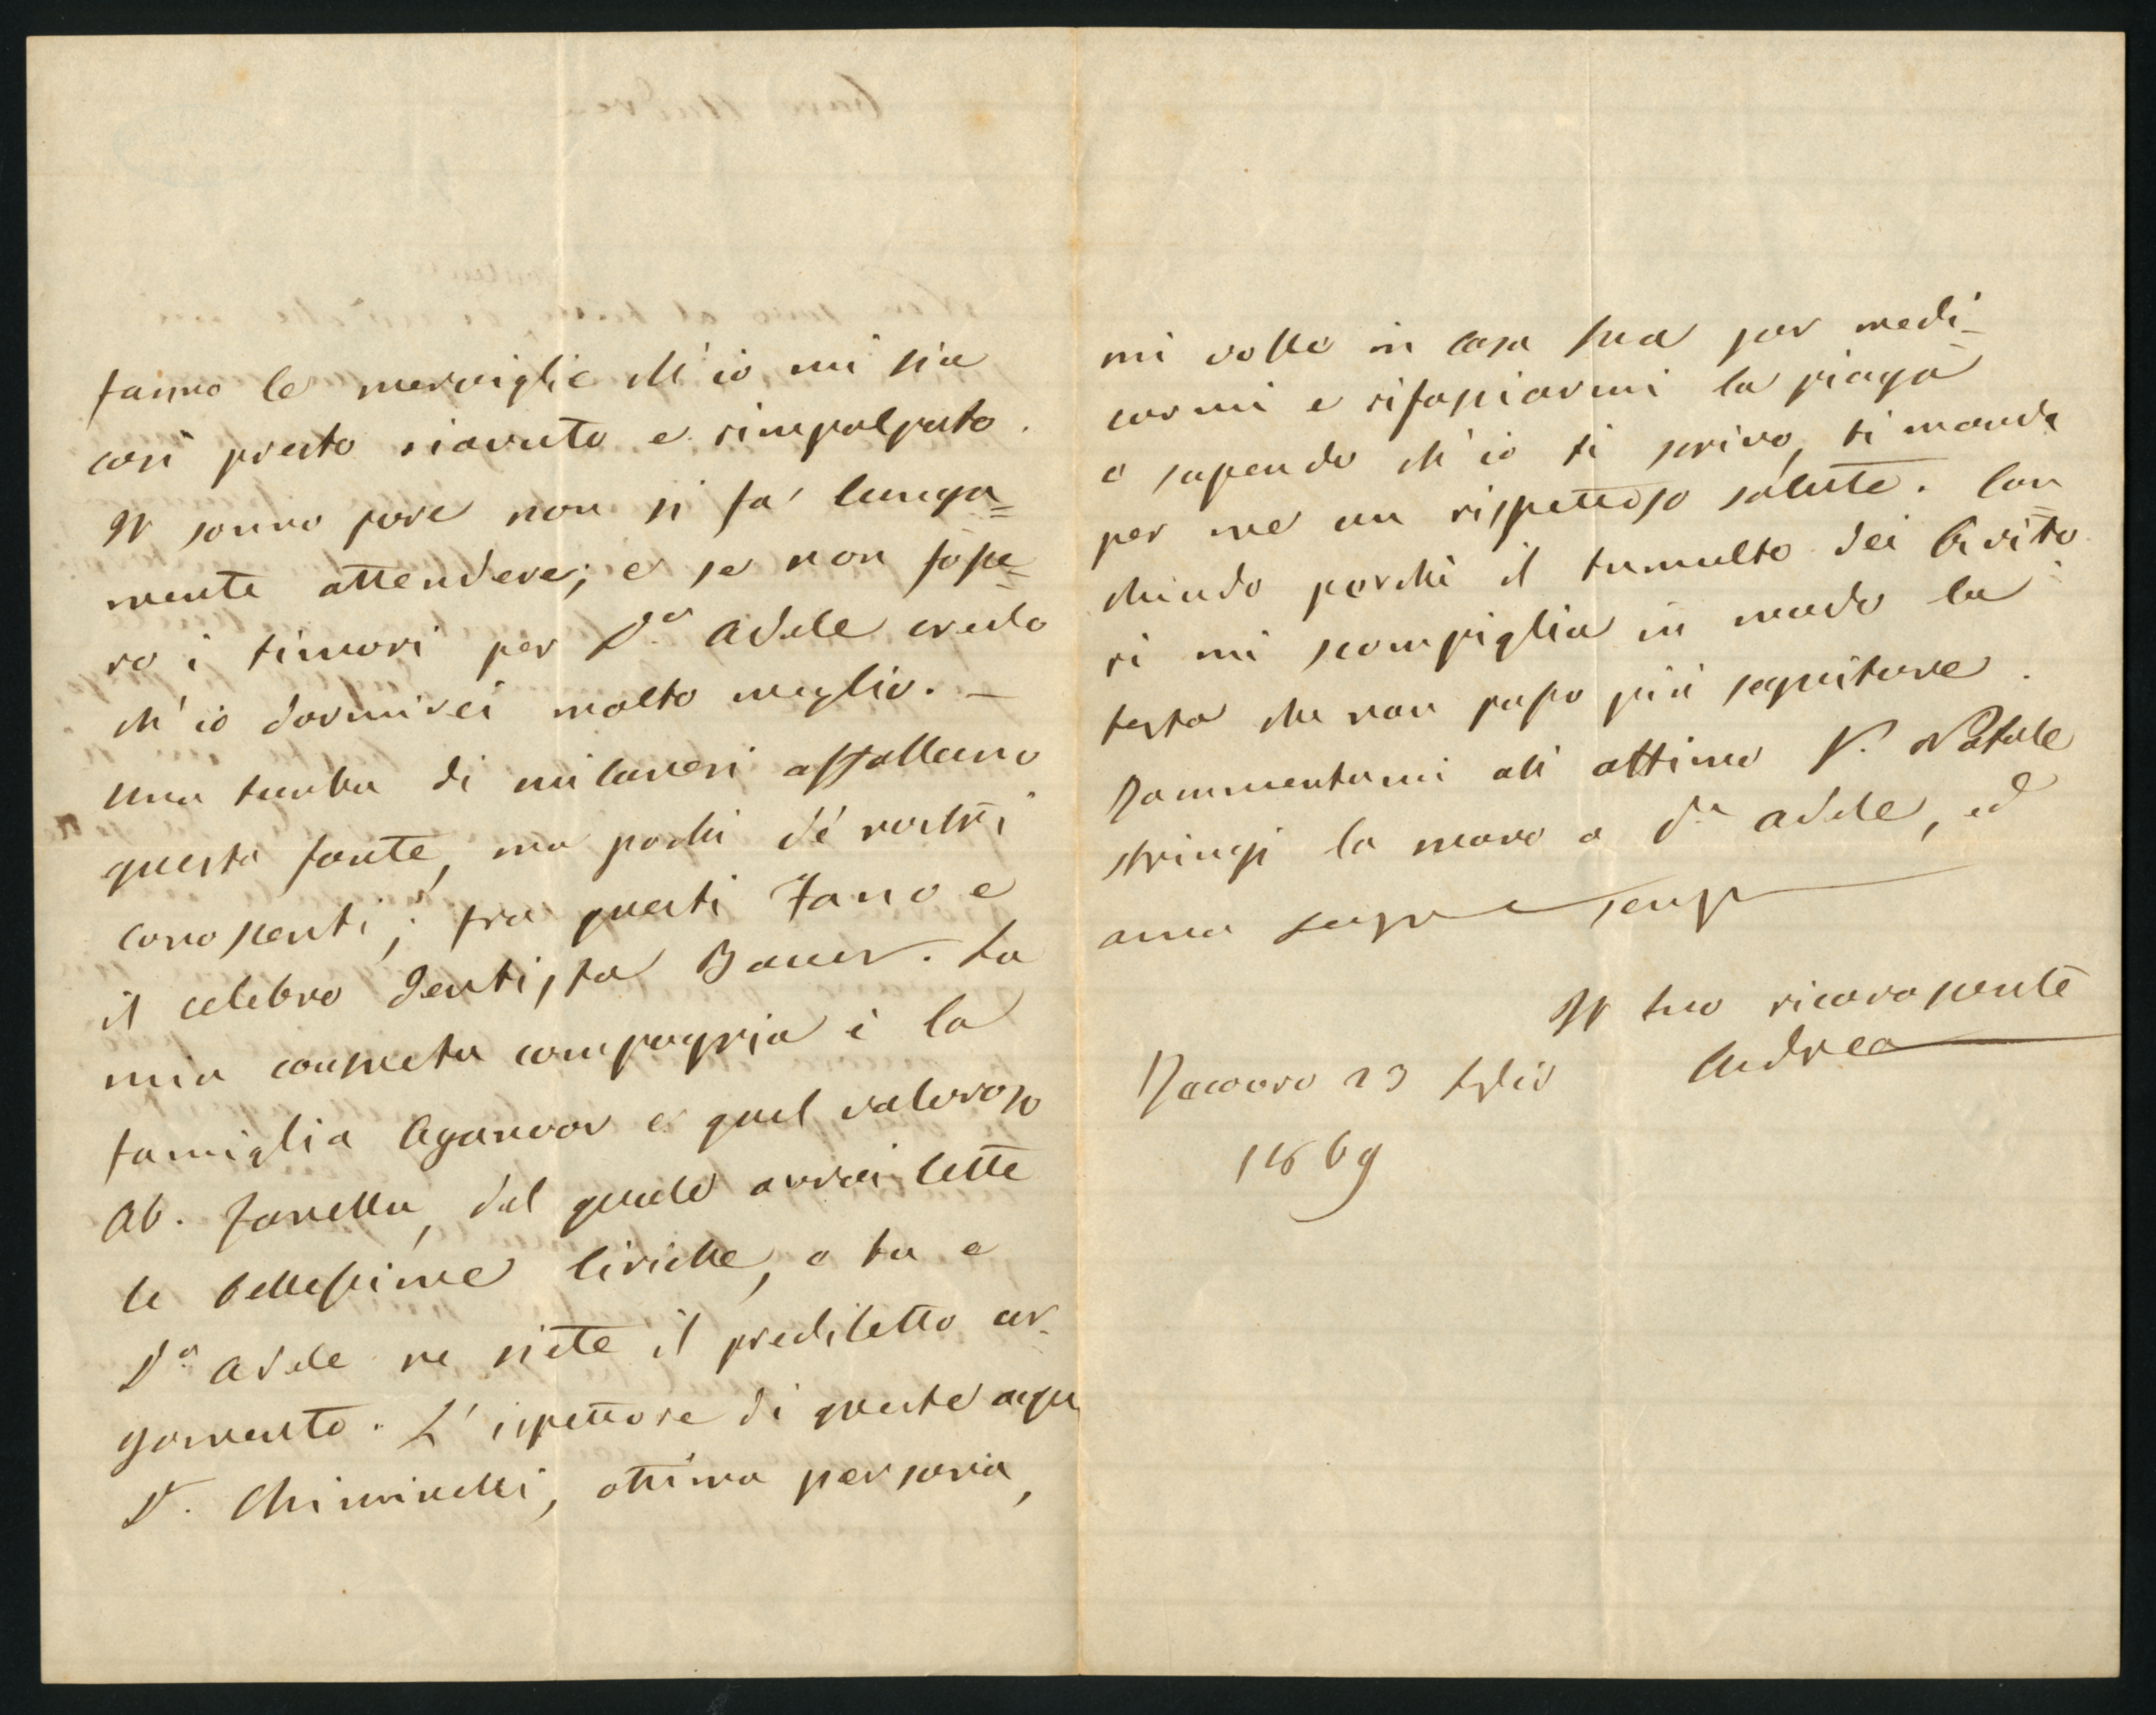 fanno le meraviglie ch'io mi sia
così presto riavuto e rimpolpato.
Il sonno pure non si fa' lunga=
mente attendere; e se non fosse=
ro i timori per Dª Adele credo
ch'io dormirei molto meglio. –
Una turba di milanesi affollano
questa fonte, ma pochi de' nostri
conoscenti; fra questi Fano e
il celebre dentista Bauer. La
mia consueta compagnia è la
famiglia Aganoor e quel valoroso
Ab. Zanella, del quale avrai lette
le bellissime liriche, e tu e
Dª Adele ne siete il prediletto ar-
gomento. L'ispettore di queste acque
Dr. Chiminelli, ottima persona,
mi volle in casa sua per medi-
carmi e rifasciarmi la piaga
e sapendo ch'io ti scrivo, ti manda
per me un rispettoso salute. Con
chiudo perchè il tumulto dei bevito
ri mi scompiglia in modo la
testa che non posso più seguitare.
Rammentami all ottimo Dr. Natale
stringi la mano a Dª Adele, ed
ama sempre e sempre
Il tuo riconoscente
Andrea
Recoaro 23 Luglio
1869